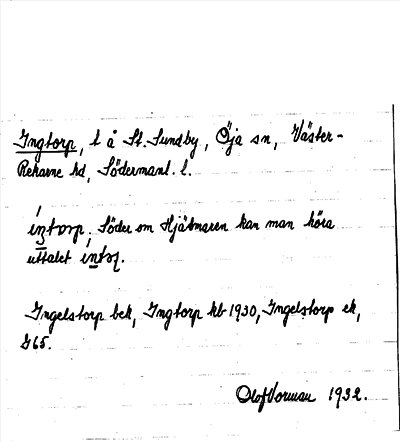 Ingtorp, t å St. Sundby, Öja sn, Väster-
Rekarne hd, Södermanl. l.
Söder om Hjälmaren kan man höra
uttalet
Ingelstorp bek, Ingtorp kb 1930, Ingelstorp ek,
G65.
Olof Vorman 1932.